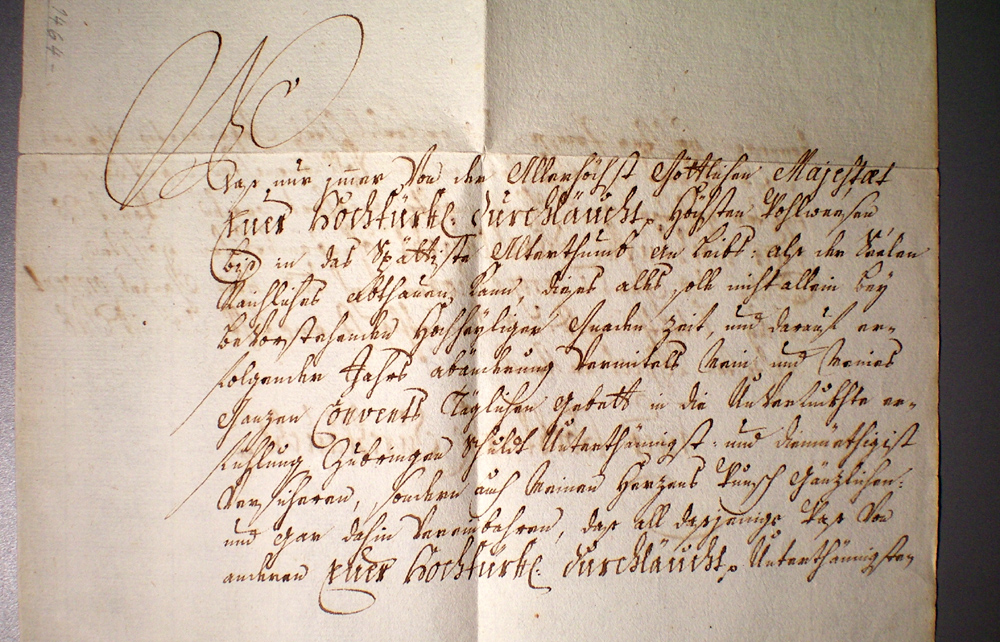 1464.
Was nur jmer Von der Allerhöchst Göttlichen Majestæt
Euer Hochfürstl: Durchläucht, Höchsten Wohlweesen
biß in das Spättiste Alterthumb an Leibs: alß der Seelen
Reichliches abthauen kann, dises alles solle nicht allein bey
bevorstehenden Hochheyligen Gnaden Zeit, und darauf er-
folgender Jahrs abänderung Vermitels Mein und Meines
Ganzen Convents Täglichen Gebett in die Unverruckhte er-
fühlung Zubringen Schuldt Unterthänigst: und diemüethigist
Versicheren, sondern auch Meinen Herzens Wunsch Gänzlichen:
und gar dahin Vereinbahren, daß all dasjenige Waß Von
anderen Euer Hochfürstl: Durchläucht, Unterthänigsten